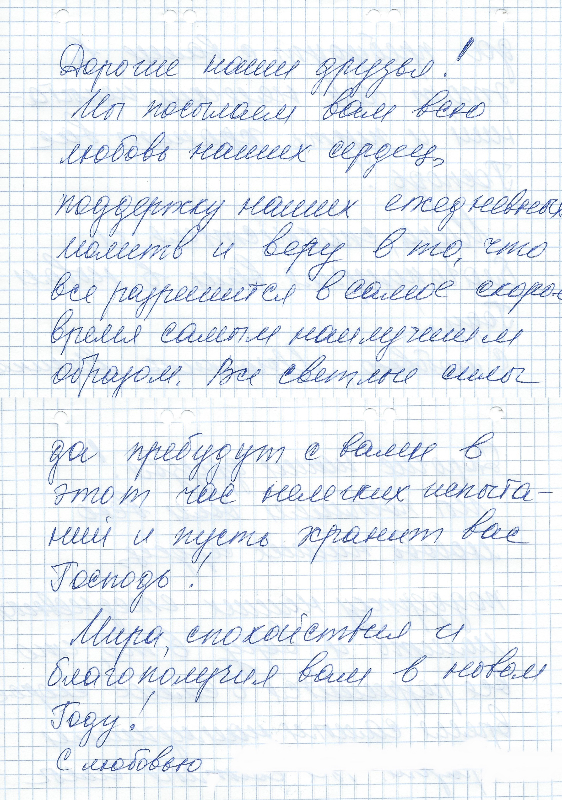 Дорогие наши друзья!
Мы посылаем вам всю
любовь наших сердец,
поддержку наших ежедневных
молитв и веру в то, что
все разрешится в самое скорое
время самым наилучшим
образом. Все светлые силы
да пребудут с вами в
этот час нелегких испыта-
ний и пусть хранит вас
Господь!
Мира, спокойствия и
благополучия вам в новом
Году!
С любовью